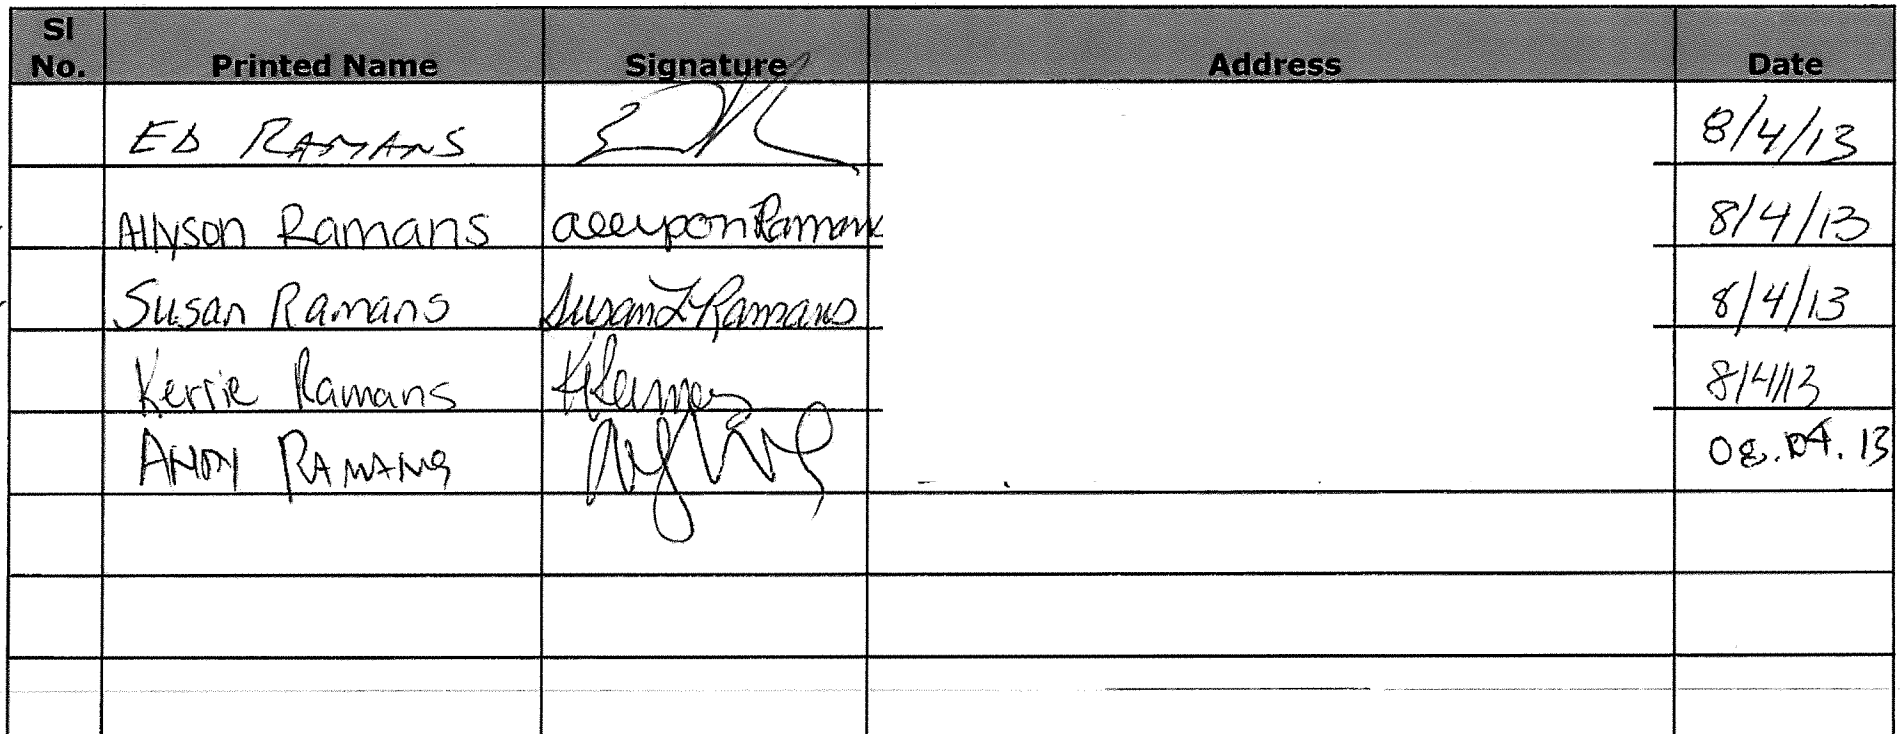 Sl No. Printed Name Signature Address Date
ED RAMANS 8/4/13
Allyson Ramans Allyson Ramans 8/4/13
Susan Ramans Susan L Ramans 8/4/13
Kerrie Ramans 8/4/13
ANDY RAMANS 08.04.13